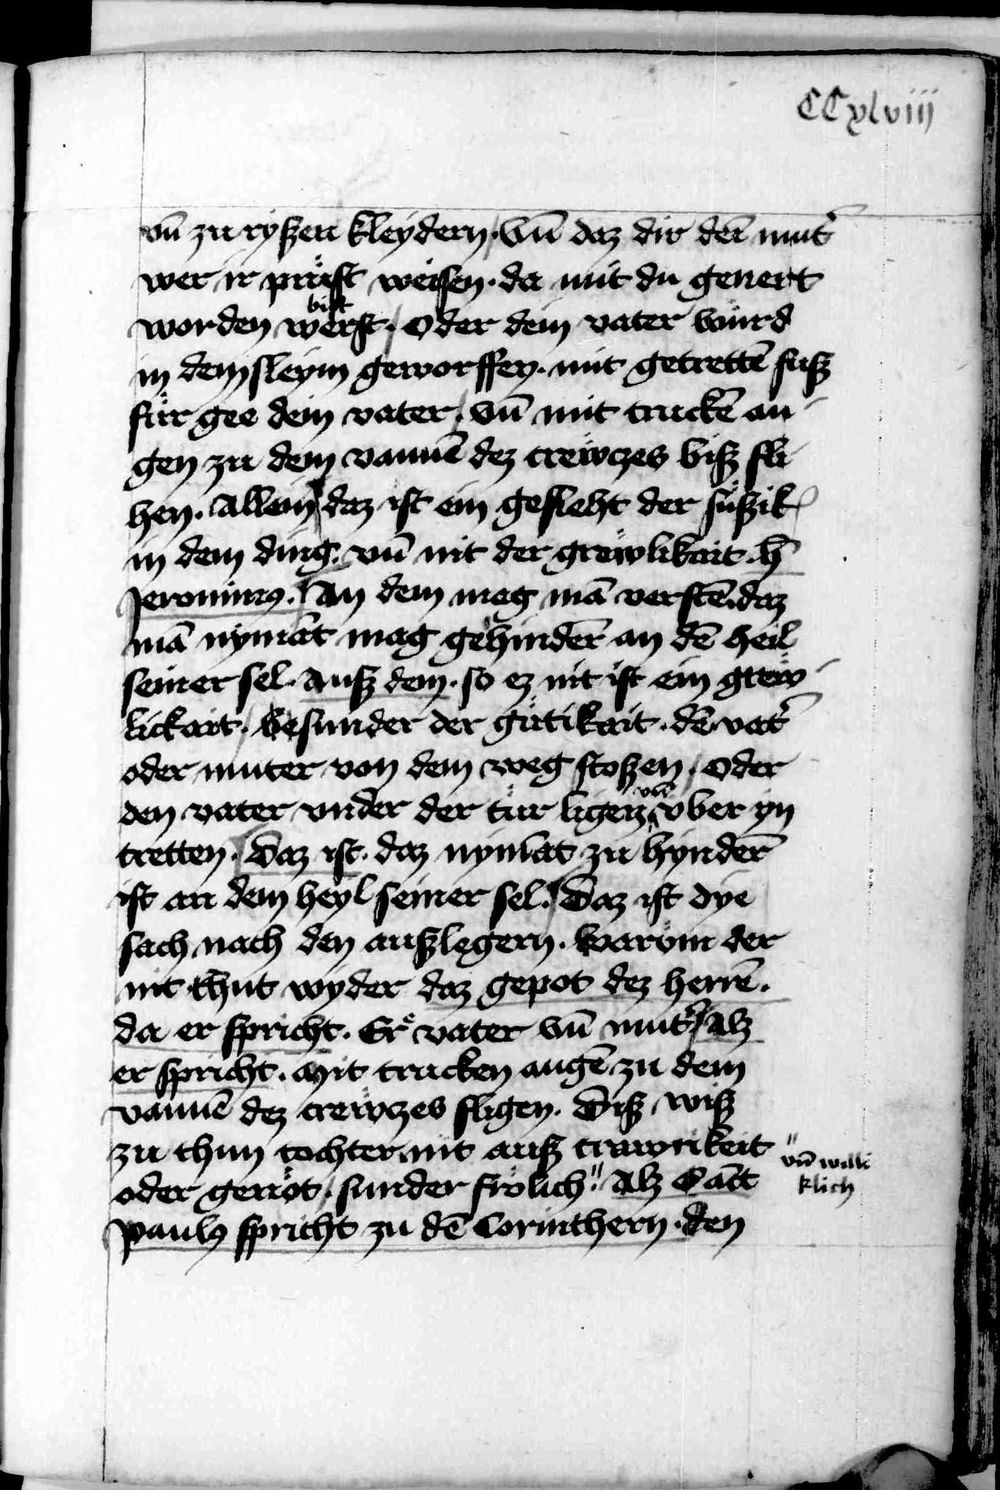 CCxlviii
vn̄ zu ryßen kleydern. Vn̄ daz dir dei mut̾
wer ir prüst weisen. da mit du genert
worden werst bist. Oder dein vater würd
in dem sleym geworffen. mit getrettē fuß
für gee dein vater. Vn̄ mit truckē au
gen zu dem vannē dez crewczes biß fli
hen. Allein daz ist ein gesleht der süßik
in dem ding. vn̄ nit der grewlikait. h̄
Jeronimꝯ. An dem mag mā verstē. daz
mā nymāt mag gehindēr an dē heil
seiner sel. Auß dem. so ez nit ist ein grew
lickait. besunder der gütikait. dē vat̾
oder muter von dem weg stoßen. Oder
den vater vnder der tür ligen vn̄ vber yn
tretten. Daz ist. daz nymāt zu hyndēr
ist an dem heyl seiner sel. Daz ist dye
sach nach den außlegern. Warūm der
nit thut wyder daz gepot dez herrē.
da er spricht. Er vater vn̄ mut̾ Alz
er spricht. Mit trucken augē zu dem
vannē dez crewczes fligen. Diß wiß
zu thun tochter nit auß trawrikeit
oder genöt. sunder frölich" Alz Sāt
" vn̄ willi
klich
Paulꝯ spricht zu dē Corinthern. den